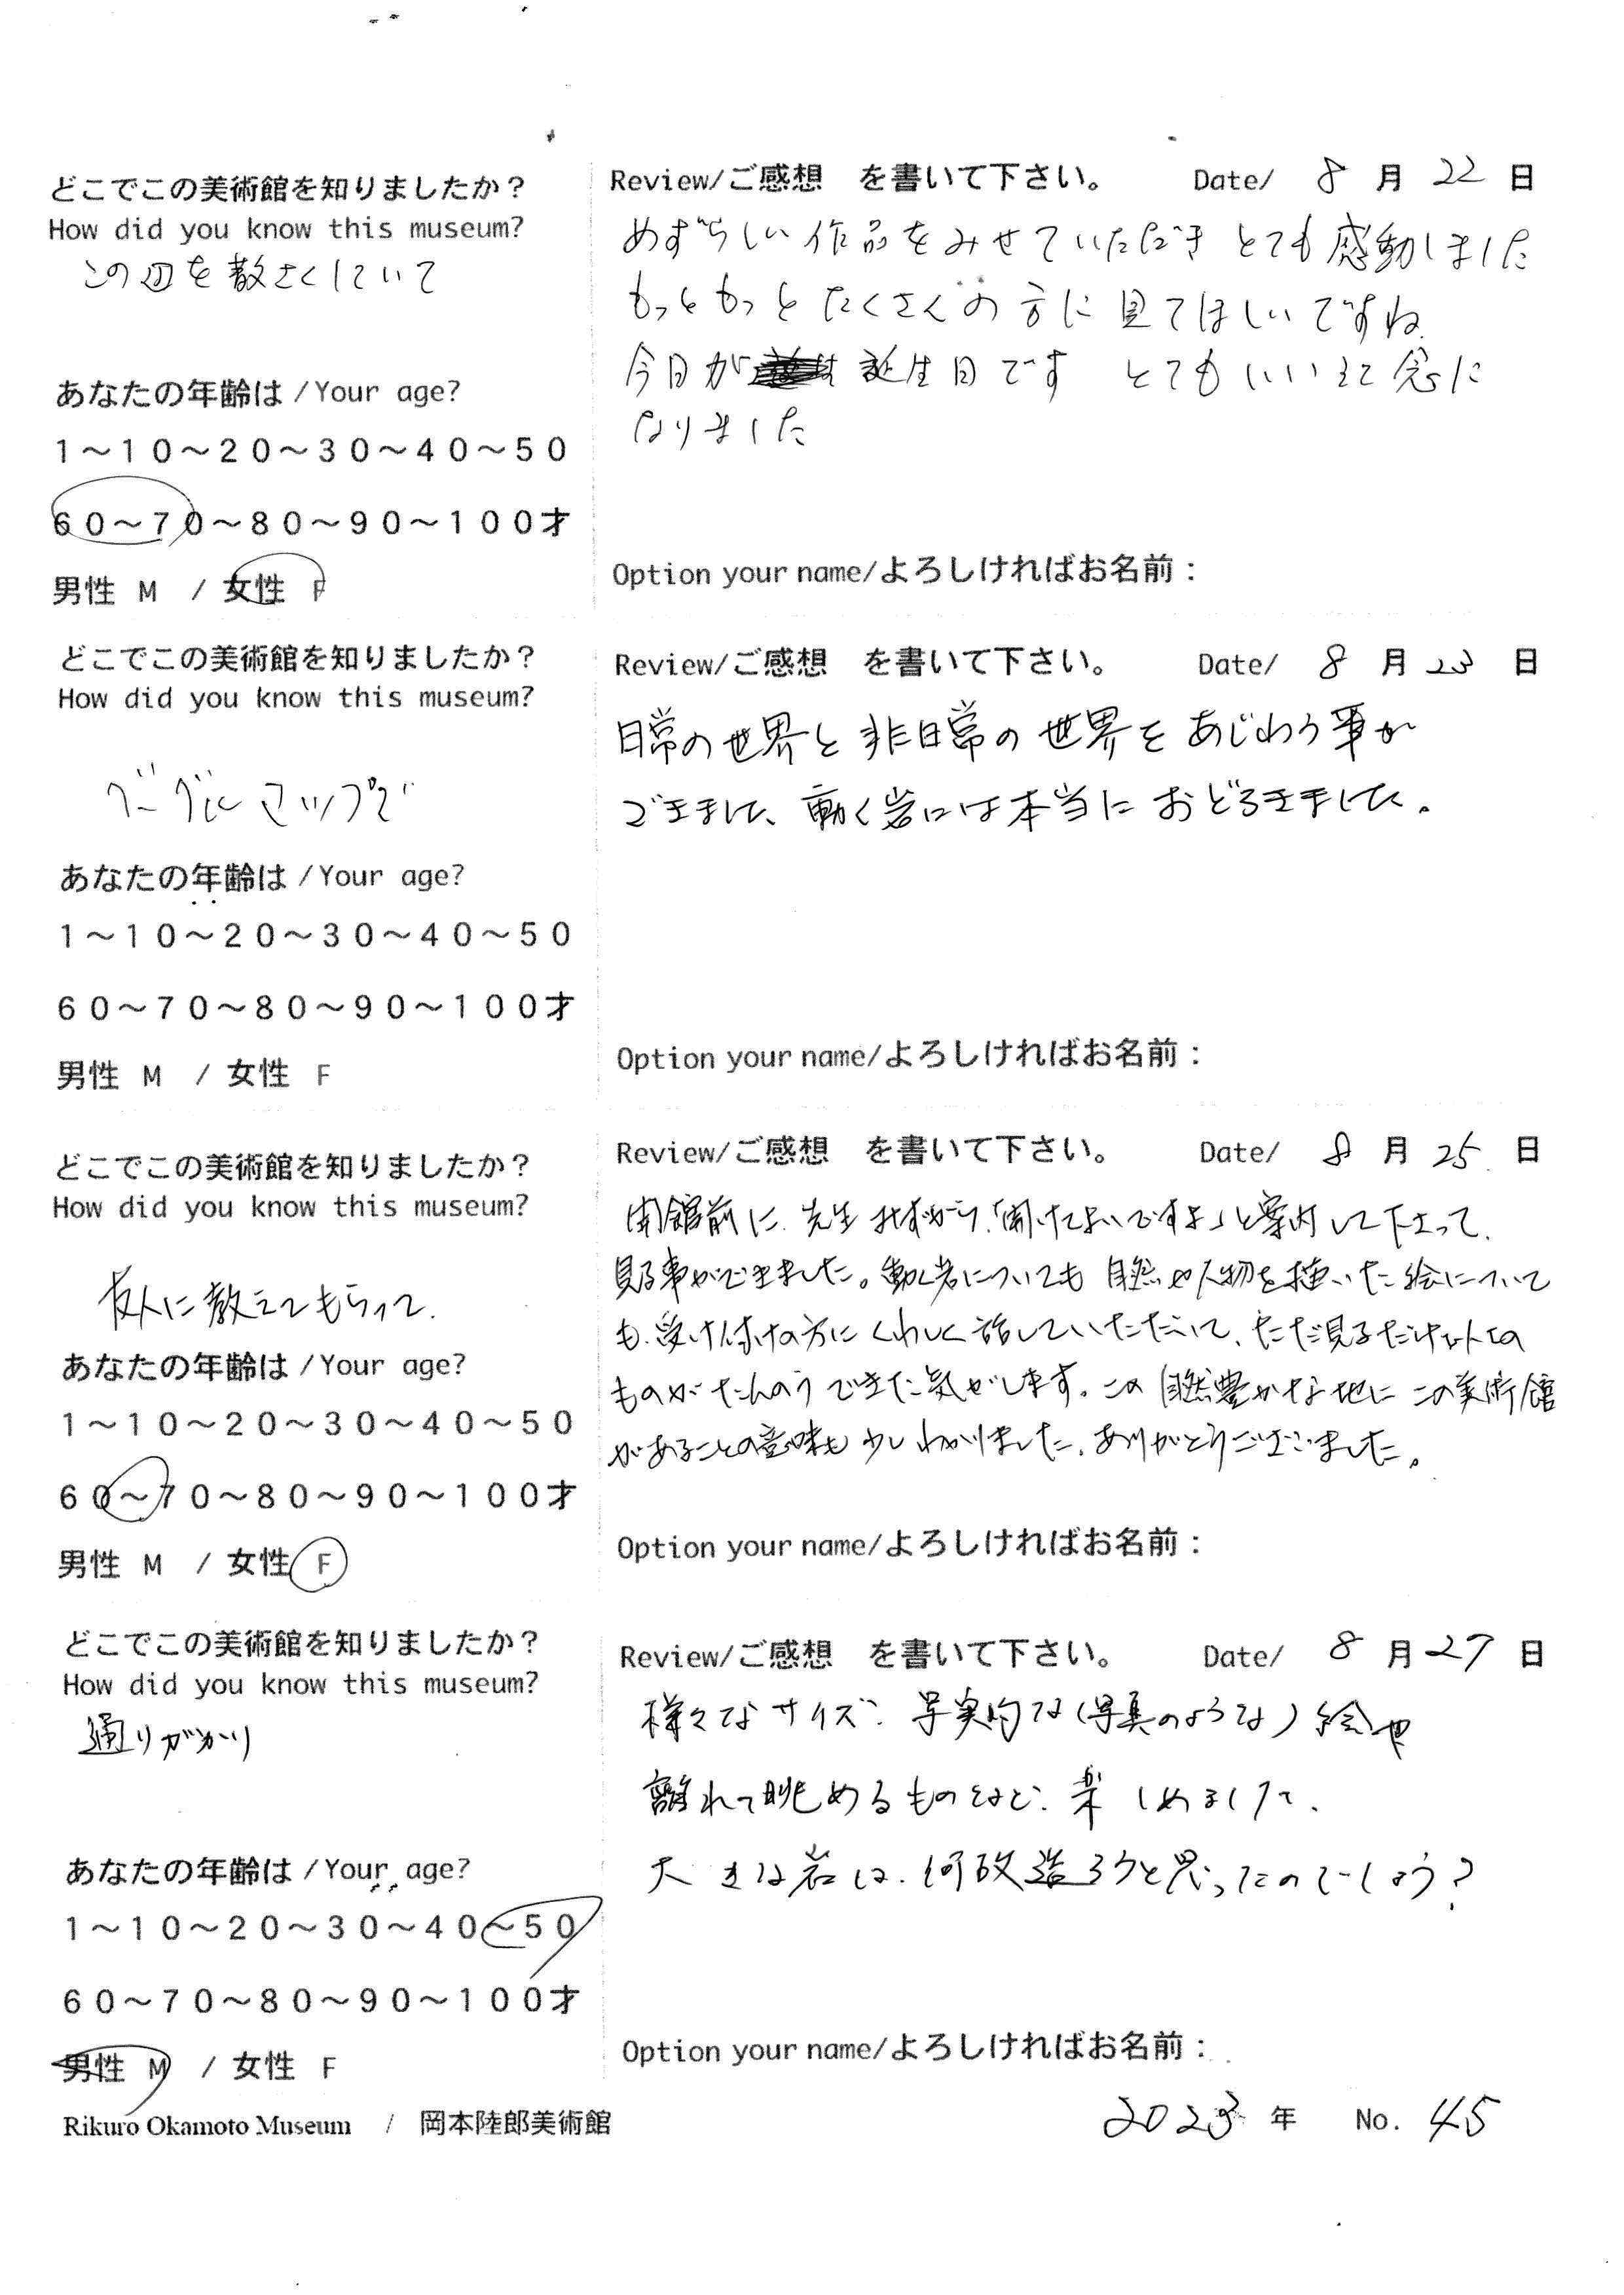 どこでこの美術館を知りましたか？
How did you know this museum?
この辺を散さくしていて
あなたの年齢は /Your age?
1～10～20～30～40～50
60～70～80～90～100才
男性 M / 女性 F
Review/ご感想 を書いて下さい。 Date/ 8 月 22 日
めずらしい作品をみせていただき とても感動しました
もっともっと たくさんの方に見てほしいですね
今日が 誕生日です とてもいい記念に
なりました
Option your name/よろしければお名前：
どこでこの美術館を知りましたか？
How did you know this museum?
グーグルマップで
あなたの年齢は /Your age?
1～10～20～30～40～50
60～70～80～90～100才
男性 M / 女性 F
Review/ご感想 を書いて下さい。 Date/ 8 月 23 日
日常の世界と非日常の世界をあじわう事が
できました、動く岩には本当におどろきました。
Option your name/よろしければお名前：
どこでこの美術館を知りましたか？
How did you know this museum?
友人に教えてもらって.
あなたの年齢は /Your age?
1～10～20～30～40～50
60～70～80～90～100才
男性 M / 女性 F
Review/ご感想 を書いて下さい。 Date/ 8 月 25 日
開館前に、先生みずから、「開けてよいですよ」と案内して下さって、
見る事ができました。動く岩についても 自然や人物を描いた絵について
も、受け付けの方にくわしく話していただいて、ただ見るだけ以上の
ものがたんのうできた気がします。この自然豊かな地にこの美術館
があることの意味も少しわかりました、ありがとうございました。
Option your name/よろしければお名前：
どこでこの美術館を知りましたか？
How did you know this museum?
通りがかり
あなたの年齢は /Your age?
1～10～20～30～40～50
60～70～80～90～100才
男性 M / 女性 F
Rikuro Okamoto Museum / 岡本陸郎美術館
Review/ご感想 を書いて下さい。 Date/ 8 月 27 日
様々なサイズ、写実的な（写真のような）絵や
離れて眺めるものなど、楽しめました、
大きな岩は、何故造ろうと思ったのでしょう？
Option your name/よろしければお名前：
2023 年 No. 45